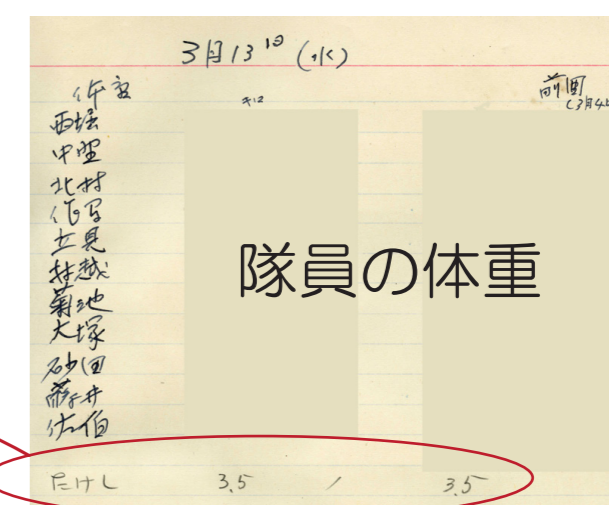 3月13日 (水)
体重
キロ
前回
(3月4日
西堀
中野
北村
作写
立見
村越
菊池
大塚
砂田
藤井
佐伯
隊員の体重
たけし 3.5 / 3.5